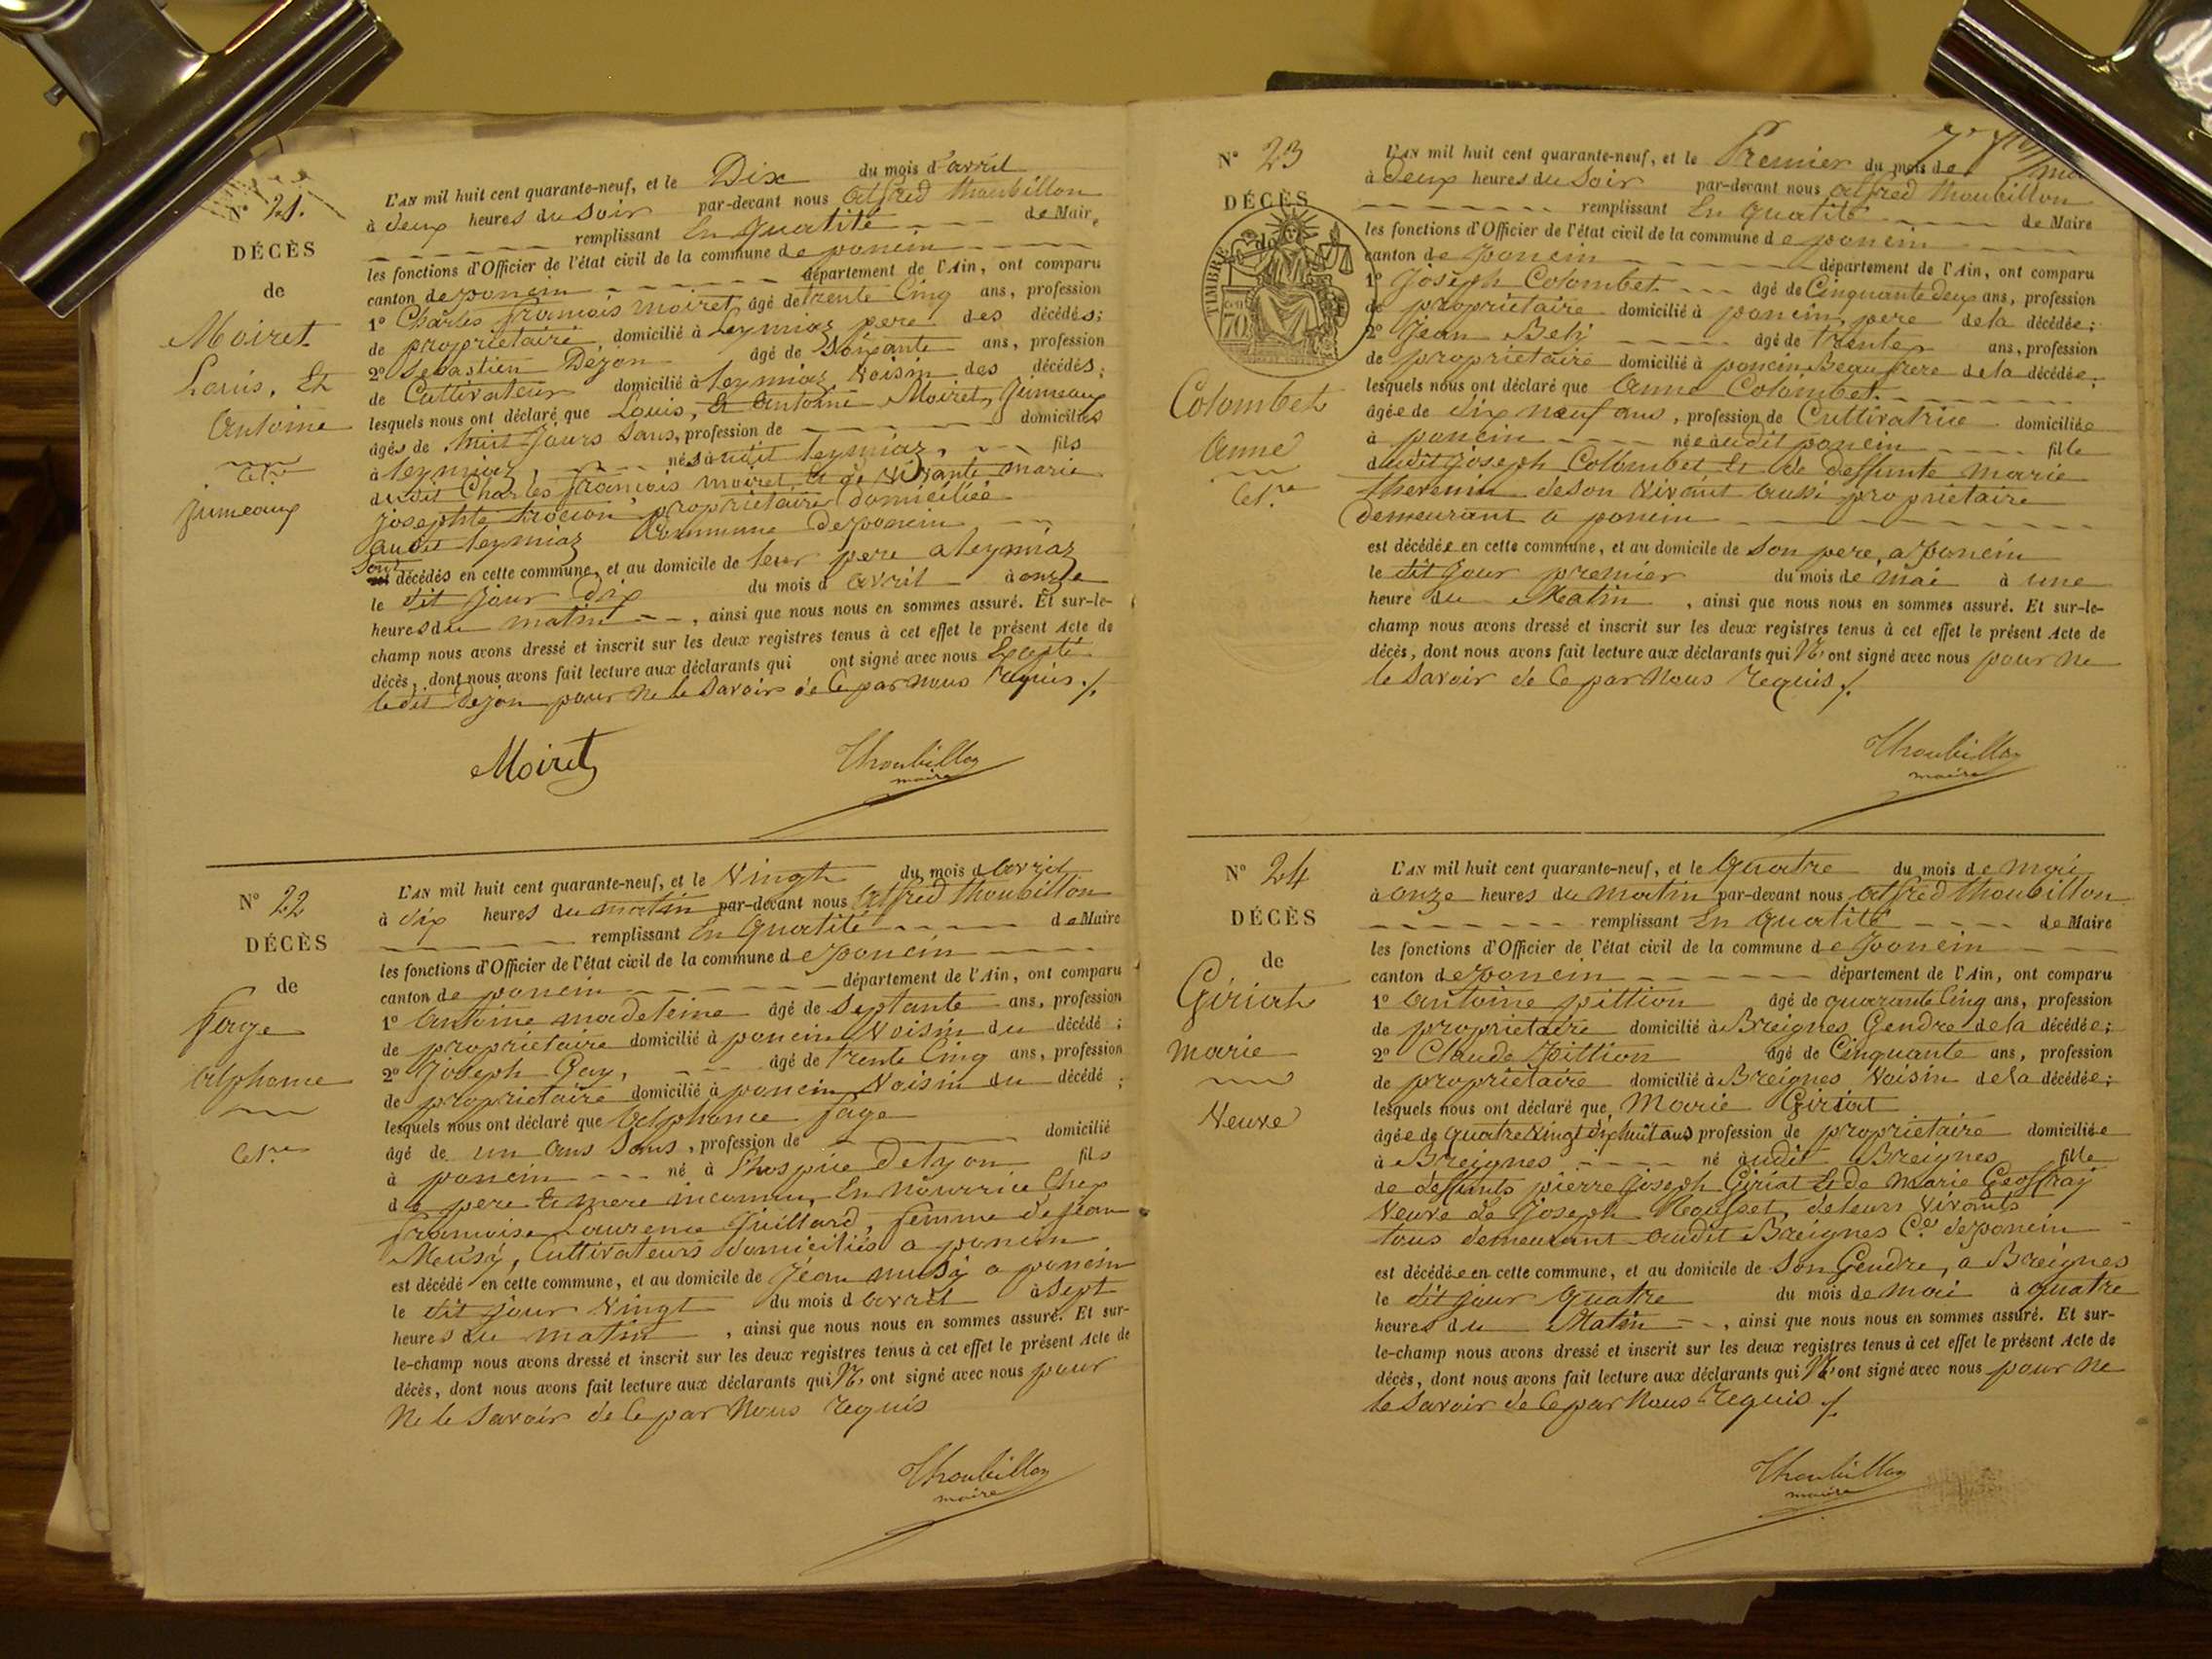 N° 21.
DÉCÈS
de
Moiret
Louis, Et
Antoine
Cel.re
jumeaux
L'AN mil huit cent quarante-neuf, et le Dix du mois d'avril
à deux heures du Soir par-devant nous Alfred Thoubillon
remplissant En Qualité de Maire
les fonctions d'Officier de l'état civil de la commune de poncin
canton de poncin département de l'Ain, ont comparu
1° Charles françois moiret âgé de trente Cinq ans, profession
de propriétaire, domicilié à Leymiaz pere des décédés;
2° Sebastien Dezon âgé de Soixante ans, profession
de Cultivateur domicilié à leymiaz Voisin des décédés;
lesquels nous ont déclaré que Louis, Et Antoine Moiret, Jumeaux
âgés de huit Jours Sans, profession de domiciliés
à leymiaz, nés à udit leymiaz, fils
dudit Charles françois moiret, Et de Vivante marie
josephte propriétaire domiciliée
audit leymiaz Commune de poncin
sont décédés en cette commune, et au domicile de leur pere a leymiaz
le dit jour dix du mois d avril à onze
heures du matin, ainsi que nous nous en sommes assuré. Et sur-le-
champ nous avons dressé et inscrit sur les deux registres tenus à cet effet le présent Acte de
décès, dont nous avons fait lecture aux déclarants qui ont signé avec nous Excepté
ledit Dezon pour ne le Savoir de Ce par Nous requis ./.
Moiret
Thoubillon
maire
N° 22
DÉCÈS
de
farge
Alphonce
Cel.re
L'AN mil huit cent quarante-neuf, et le Vingt du mois d avril
à dix heures du matin par-devant nous Alfred Thoubillon
remplissant En Qualité de Maire
les fonctions d'Officier de l'état civil de la commune de poncin
canton de poncin département de l'Ain, ont comparu
1° Antoine madeleine âgé de Septante ans, profession
de propriétaire domicilié à poncin Voisin du décédé;
2° Joseph Gay, âgé de trente Cinq ans, profession
de propriétaire domicilié à poncin Voisin du décédé;
lesquels nous ont déclaré que Alphonce fage
âgé de un ans Sans, profession de domicilié
à poncin né à l'hospice De lyon fils
de pere Et mere inconnu, En Nourrice Chez
françoise Laurence Juillard, femme de jean
Meusy, Cultivateurs domiciliés a poncin
est décédé en cette commune, et au domicile de Jean musy a poncin
le dit jour Vingt du mois d avril à Sept
heures du matin, ainsi que nous nous en sommes assuré. Et sur-
le-champ nous avons dressé et inscrit sur les deux registres tenus à cet effet le présent Acte de
décès, dont nous avons fait lecture aux déclarants qui N' ont signé avec nous pour
Ne le Savoir de Ce par Nous requis
Thoubillon
maire
N° 23
DÉCÈS
de
TIMBRE
70
Colombet
Anne
Cel.re
L'AN mil huit cent quarante-neuf, et le Premier du mois de mai
à Deux heures du Soir par-devant nous Alfred Thoubillon
remplissant En Qualité de Maire
les fonctions d'Officier de l'état civil de la commune de poncin
canton de poncin département de l'Ain, ont comparu
1° Joseph Colombet âgé de Cinquante deux ans, profession
de propriétaire domicilié à poncin, pere de la décédée;
2° Jean Bety âgé de trente ans, profession
de propriétaire domicilié à poncin Beaufrere de la décédée;
lesquels nous ont déclaré que Anne Colombet
âgée de dix neuf ans, profession de Cultivatrice domiciliée
à poncin née àudit poncin fille
dudit joseph Colombet Et de deffunte marie
thevenin de son Vivant aussi propriétaire
Demeurant a poncin
est décédée en cette commune, et au domicile de Son pere, a poncin
le dit Jour premier du mois de mai à une
heure du Matin, ainsi que nous nous en sommes assuré. Et sur-le-
champ nous avons dressé et inscrit sur les deux registres tenus à cet effet le présent Acte de
décès, dont nous avons fait lecture aux déclarants qui N' ont signé avec nous pour Ne
le Savoir de Ce par Nous requis ./.
Thoubillon
maire
N° 24
DÉCÈS
de
Giriat
marie
Veuve
L'AN mil huit cent quarante-neuf, et le Quatre du mois de mai
à onze heures du matin par-devant nous Alfred Thoubillon
remplissant En Qualité de Maire
les fonctions d'Officier de l'état civil de la commune de Poncin
canton de Poncin département de l'Ain, ont comparu
1° Antoine pittion âgé de quarante Cinq ans, profession
de propriétaire domicilié à Breignes Gendre de la décédée;
2° Claude Pittion âgé de Cinquante ans, profession
de propriétaire domicilié à Breignes Voisin de la décédée;
lesquels nous ont déclaré que Marie Giriat
âgée de Quatre Vingt dix huit ans profession de propriétaire domiciliée
à Breignes né àudit Breignes fille
de deffunts pierre joseph Giriat Et de Marie Geoffray
Veuve de Joseph Rousset, de leurs Vivants
tous demeurant audit Breignes C.e de poncin
est décédée en cette commune, et au domicile de Son Gendre, a Breignes
le dit jour Quatre du mois de mai à quatre
heures du Matin, ainsi que nous nous en sommes assuré. Et sur-
le-champ nous avons dressé et inscrit sur les deux registres tenus à cet effet le présent Acte de
décès, dont nous avons fait lecture aux déclarants qui N' ont signé avec nous pour Ne
le Savoir de Ce par Nous requis ./.
Thoubillon
maire